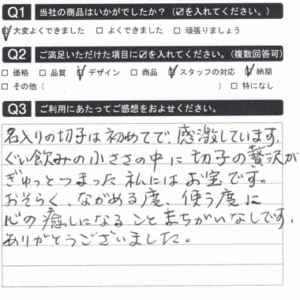 Q1 当社の商品はいかがでしたか？（☑を入れてください。）
☑大変よくできました □よくできました □頑張りましょう
Q2 ご満足いただけた項目に☑を入れてください。（複数回答可）
□価格 □品質 ☑デザイン □商品 ☑スタッフの対応 ☑納期
□その他（ ） □特になし
Q3 ご利用にあたってご感想をおよせください。
名入りの切子は初めてで感激しています。
ぐい飲みの小ささの中に切子の贅沢が
ぎゅっとつまった私にはお宝です。
おそらく、ながめる度、使う度に
心の癒しになることまちがいなしです。
ありがとうございました。